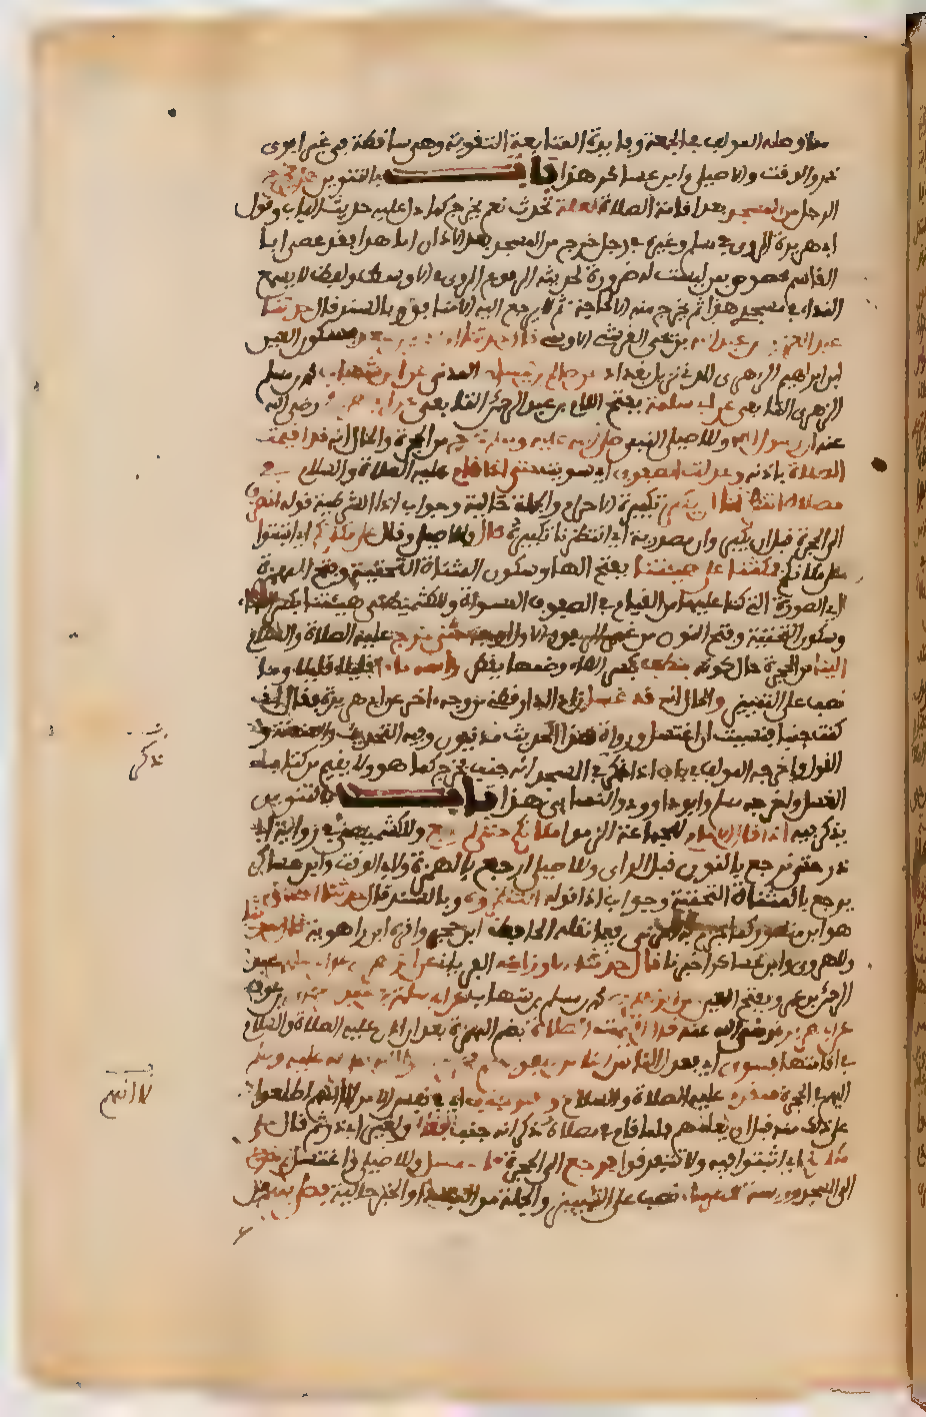 وصله المؤلف في الجمعة وفايدة المتابعة التقوية وهي ساقطة في غير ابوي
ذر والوقت والاصيلي وابن عساكر هذا باب بالتنوين هل يخرج
الرجل من المسجد بعد اقامة الصلاة لعلة تحدث نعم يخرج كما دل عليه حديث الباب وقول
ابي هريرة المروي في مسلم وغيره في رجل خرج من المسجد بعد الاذان اما هذا فقد عصى ابا
القاسم مخصوص بمن ليست له ضرورة لحديثه المرفوع المروي في الاوسط ولفظه لا يسمع
النداء في مسجدي هذا ثم يخرج منه الا لحاجة ثم لا يرجع اليه الا منافق وبالسند قال حدثنا
عبد العزيز بن عبد الله بن يحيى القرشي الاويسي قال حدثنا ابراهيم بن سعد بسكون العين
ابن ابراهيم الزهري المدني نزيل بغداد عن صالح بن كيسان المدني عن ابن شهاب محمد بن مسلم
الزهري التابعي عن ابي سلمة بفتح اللام بن عبد الرحمن التابعي عن ابي هريرة رضي الله
عنه ان رسول الله وللاصيلي النبي صلى الله عليه وسلم خرج من الحجرة والحال انه قد اقيمت
الصلاة باذنه وعدلت الصفوف اي سويت حتى اذا قام عليه الصلاة والسلام في
مصلاه انتظرنا ان يكبر تكبيرة الاحرام والجملة حالية وجواب اذا الشرطية قوله انصرف
الى الحجرة قبل ان يكبر وان مصدرية اي انتظرنا تكبيره قال وللاصيلي وقال على مكانكم اي اثبتوا
على مكانكم فمكثنا على هيئتنا بفتح الهاء وسكون المثناة التحتية وفتح الهمزة
اي الصورة التي كنا عليها من القيام في الصفوف المسواة وللكشميهني هينتنا بكسر الهاء
وسكون التحتية وفتح النون من غير همز حتى خرج عليه الصلاة والسلام
الينا من الحجرة حال كونه ينطف بكسر الطاء وضمها يقطر راسه ماء قليلا قليلا وماء
نصب على التمييز والحال انه قد اغتسل زاد الدارقطني من وجه اخر عن ابي هريرة فقال اني
كنت جنبا فنسيت ان اغتسل ورواة هذا الحديث مدنيون وفيه التحديث والعنعنة و
القول واخرجه المؤلف في باب اذا ذكر في المسجد انه جنب يخرج كما هو ولا يتيمم من كتاب
الغسل واخرجه مسلم وابو داوود والنسائي هذا باب بالتنوين
يذكر فيه اذا قال الامام للجماعة الزموا مكانكم حتى نرجع وللكشميهني في رواية ابي
ذر حتى نرجع بالنون قبل الراء وللاصيلي ارجع بالهمزة ولابي الوقت وابن عساكر
يرجع بالمثناة التحتية وجواب اذا قوله انتظروه وبالسند قال حدثنا اسحاق
هو ابن منصور كما جزم به المزي فيما نقله الحافظ ابن حجر وانه ابن راهويه
وللهروي وابن عساكر اخبرنا قال حدثنا الاوزاعي
الرحمن بن عمرو بفتح العين عن الزهري محمد بن مسلم بن شهاب عن ابي سلمة بن عبد الرحمن بن عوف
عن ابي هريرة رضي الله عنه قال اقيمت الصلاة بضم الهمزة بعد ان اذن عليه الصلاة والسلام
في اقامتها فسوى اي فعدل الناس صفوفهم فخرج رسول الله صلى الله عليه وسلم
اليهم من الحجرة فتقدم عليه الصلاة والسلام وهو جنب اي في نفس الامر لا انهم اطلعوا
على ذلك منه قبل ان يعلمهم فلما قام في مصلاه ذكر انه جنب ثم قال على
مكانكم اي اثبتوا فيه ولا تتفرقوا فرجع الى الحجرة فاغتسل وللاصيلي واغتسل ثم خرج
الى المسجد وراسه يقطر ماء نصب على التمييز والجملة حالية فصلى بهم
تذكر
لا انهم